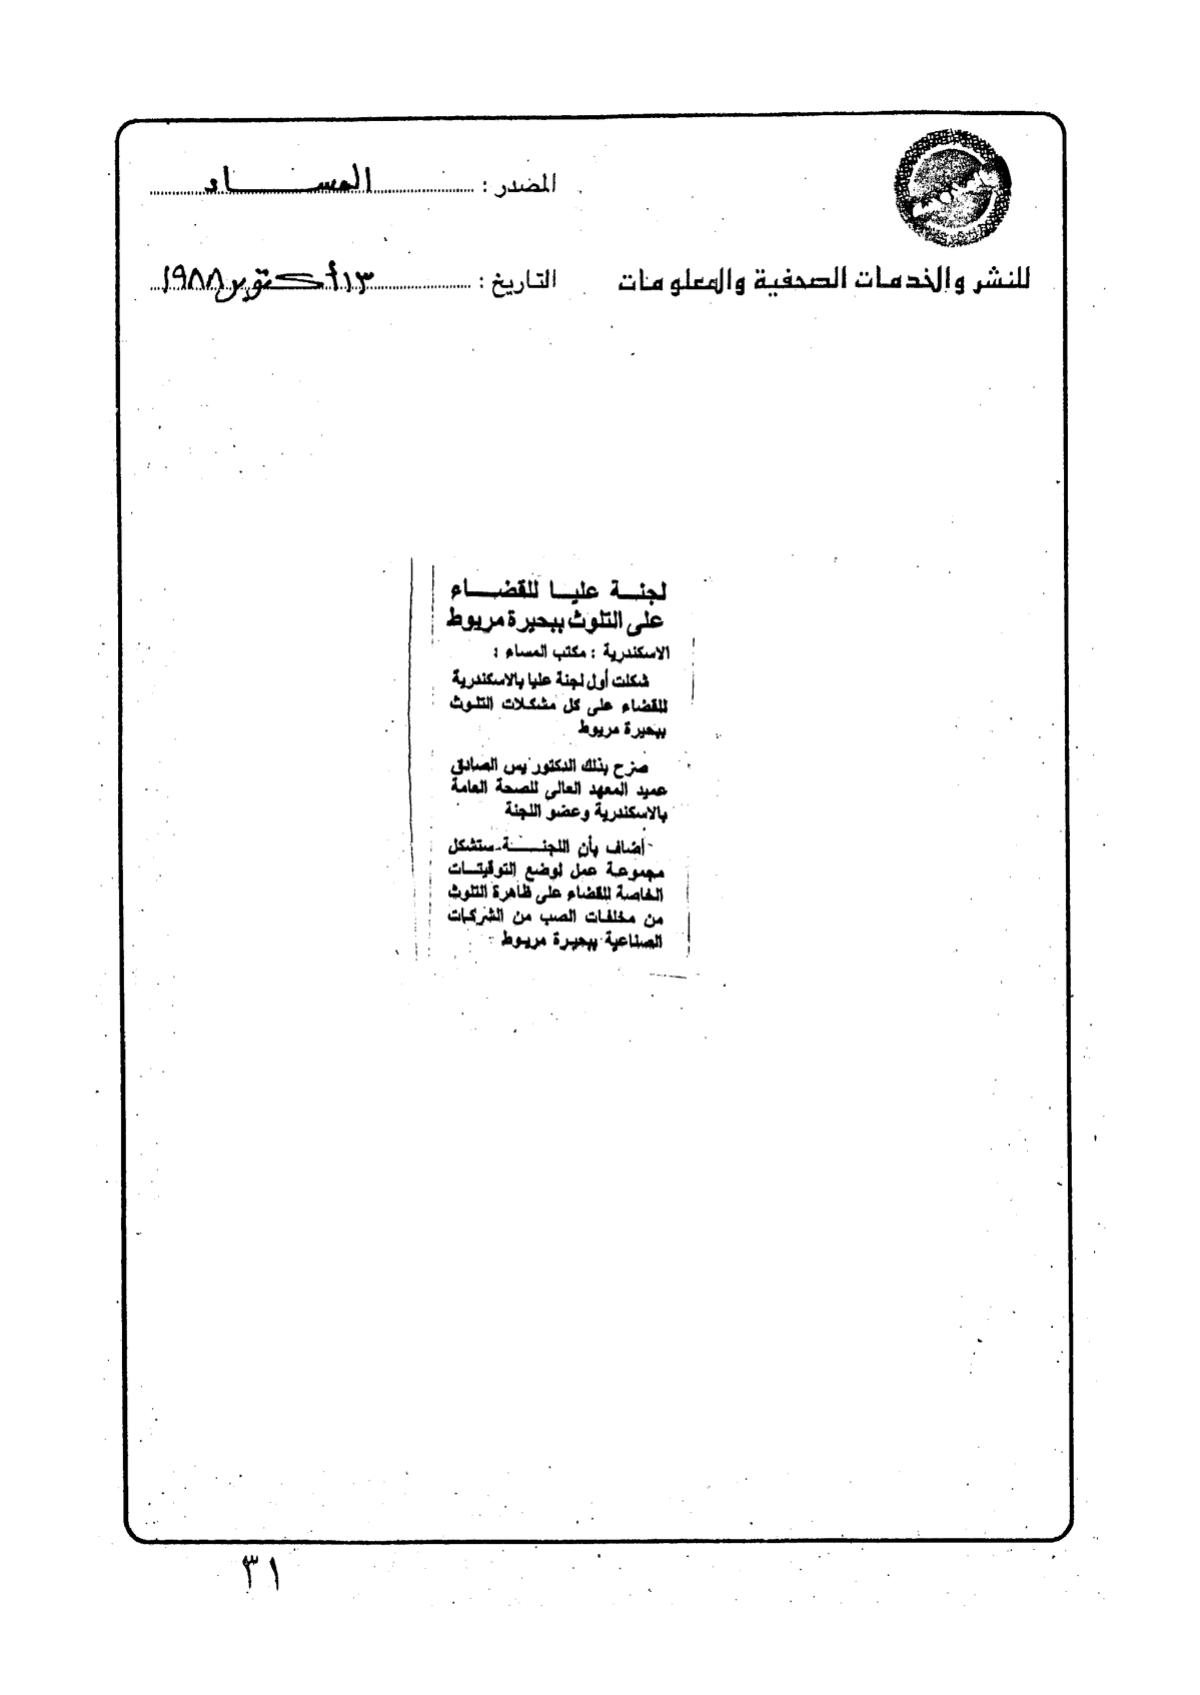 المصدر : المساء
للنشر والخدمات الصحفية والمعلومات
التاريخ : ١٣ أكتوبر ١٩٨٨
لجنة عليا للقضاء
على التلوث ببحيرة مريوط
الاسكندرية : مكتب المساء :
شكلت أول لجنة عليا بالاسكندرية
للقضاء على كل مشكلات التلوث
ببحيرة مريوط
صرح بذلك الدكتور يس الصادق
عميد المعهد العالى للصحة العامة
بالاسكندرية وعضو اللجنة
أضاف بأن اللجنة ستشكل
مجموعة عمل لوضع التوقيتات
الخاصة للقضاء على ظاهرة التلوث
من مخلفات الصب من الشركات
الصناعية ببحيرة مريوط
٣١